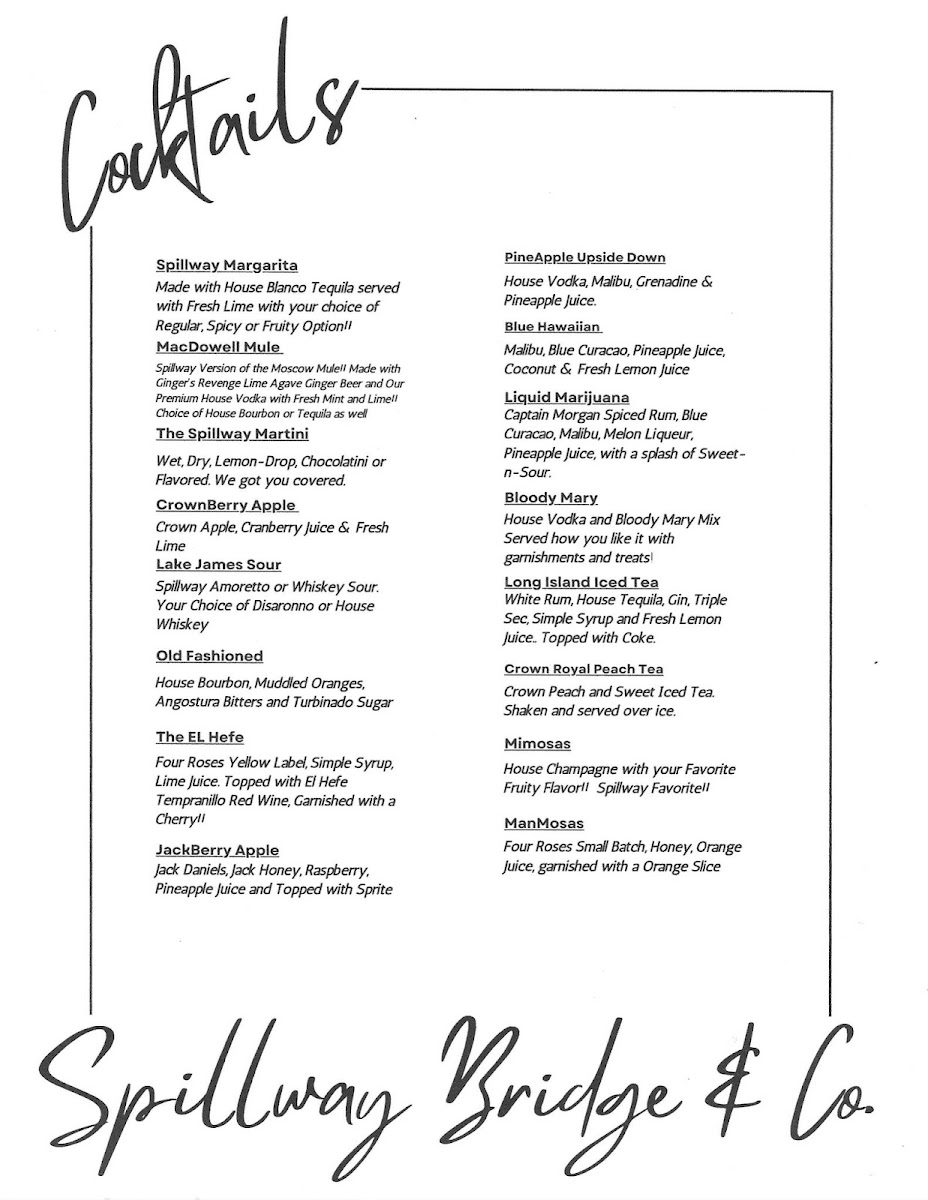 Cocktails
Spillway Margarita
Made with House Blanco Tequila served
with Fresh Lime with your choice of
Regular, Spicy or Fruity Option!!
MacDowell Mule
Spillway Version of the Moscow Mule!! Made with
Ginger's Revenge Lime Agave Ginger Beer and Our
Premium House Vodka with Fresh Mint and Lime!!
Choice of House Bourbon or Tequila as well
The Spillway Martini
Wet, Dry, Lemon-Drop, Chocolatini or
Flavored. We got you covered.
CrownBerry Apple
Crown Apple, Cranberry Juice & Fresh
Lime
Lake James Sour
Spillway Amoretto or Whiskey Sour.
Your Choice of Disaronno or House
Whiskey
Old Fashioned
House Bourbon, Muddled Oranges,
Angostura Bitters and Turbinado Sugar
The EL Hefe
Four Roses Yellow Label, Simple Syrup,
Lime Juice. Topped with El Hefe
Tempranillo Red Wine, Garnished with a
Cherry!!
JackBerry Apple
Jack Daniels, Jack Honey, Raspberry,
Pineapple Juice and Topped with Sprite
PineApple Upside Down
House Vodka, Malibu, Grenadine &
Pineapple Juice.
Blue Hawaiian
Malibu, Blue Curacao, Pineapple Juice,
Coconut & Fresh Lemon Juice
Liquid Marijuana
Captain Morgan Spiced Rum, Blue
Curacao, Malibu, Melon Liqueur,
Pineapple Juice, with a splash of Sweet-
n-Sour.
Bloody Mary
House Vodka and Bloody Mary Mix
Served how you like it with
garnishments and treats!
Long Island Iced Tea
White Rum, House Tequila, Gin, Triple
Sec, Simple Syrup and Fresh Lemon
Juice.. Topped with Coke.
Crown Royal Peach Tea
Crown Peach and Sweet Iced Tea.
Shaken and served over ice.
Mimosas
House Champagne with your Favorite
Fruity Flavor!! Spillway Favorite!!
ManMosas
Four Roses Small Batch, Honey, Orange
Juice, garnished with a Orange Slice
Spillway Bridge & Co.